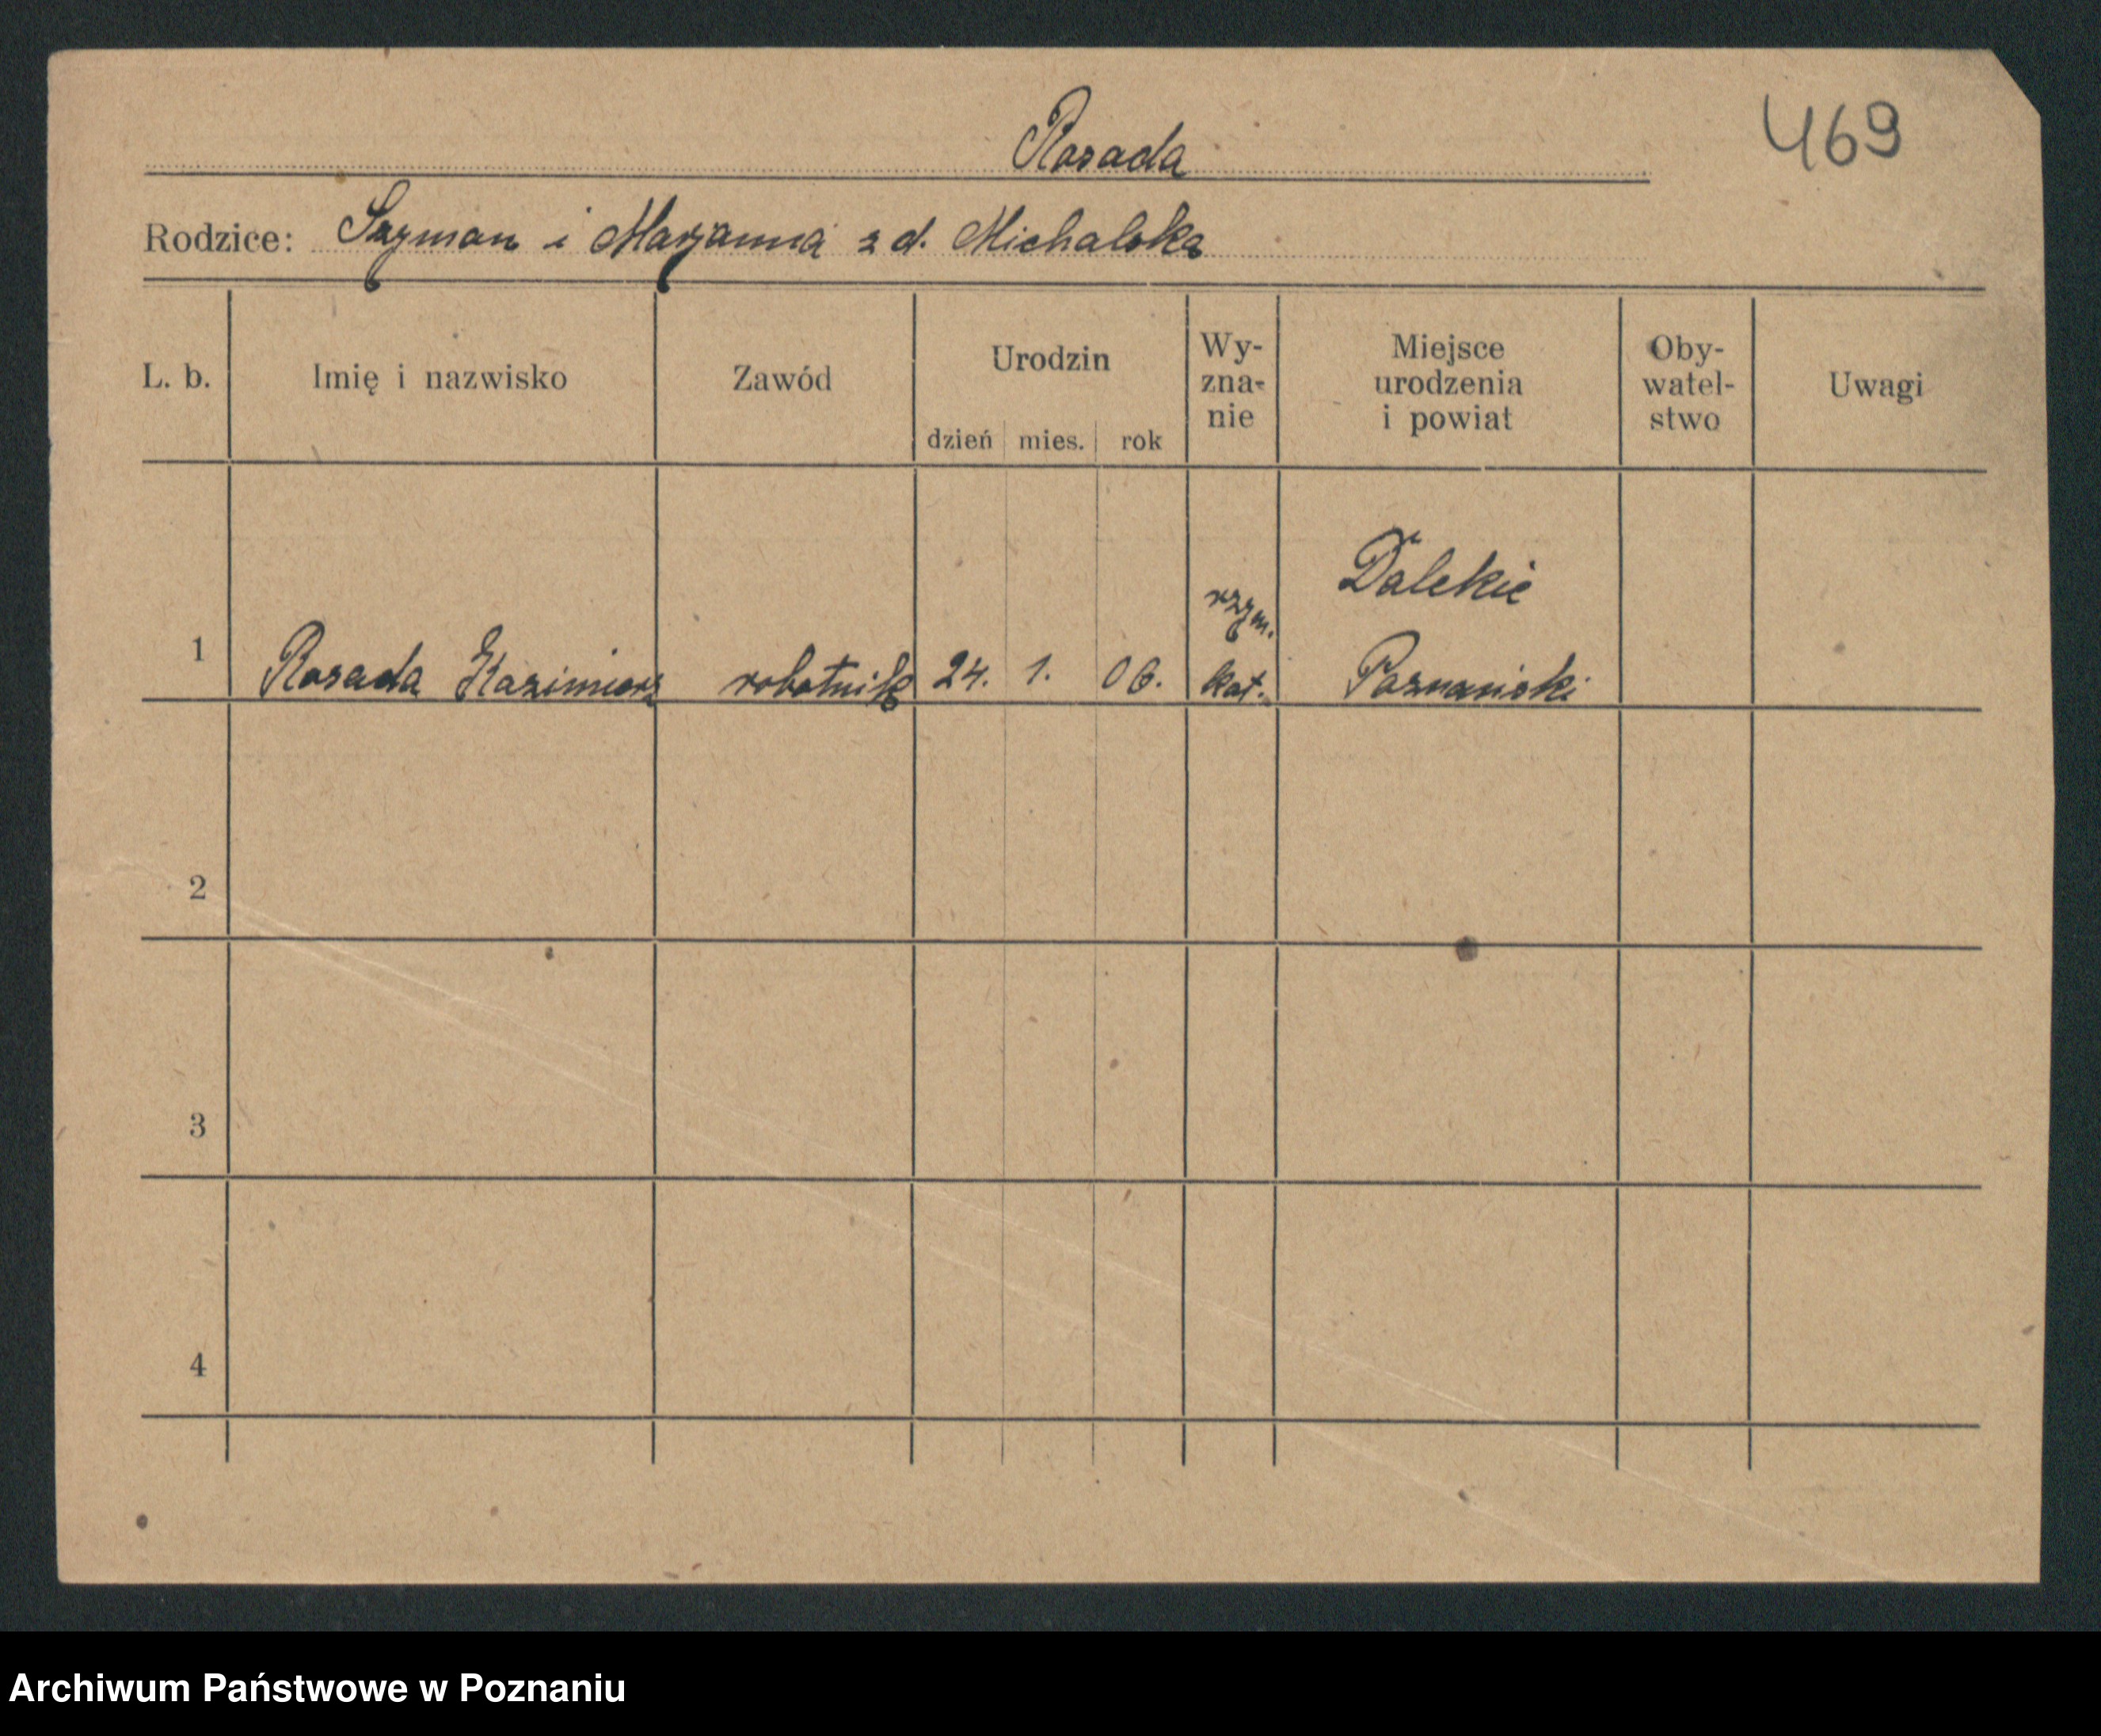 Rosada
469
Rodzice: Szyman i Marjanna z d. Michalska
L. b.
Imię i nazwisko
Zawód
Urodzin
dzień mies. rok
Wy-
zna-
nie
Miejsce
urodzenia
i powiat
Oby-
watel-
stwo
Uwagi
1 Rosada Kazimierz robotnik 24. 1. 06.
rzym.
kat.
Dalekie
Poznański
2
3
4
Archiwum Państwowe w Poznaniu